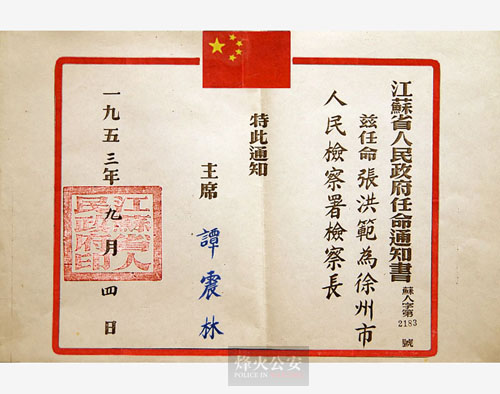 江蘇省人民政府任命通知書
蘇人字第2183號
茲任命張洪範為徐州市
人民檢察署檢察長
特此通知
主席 譚震林
一九五三年九月四日
江蘇省人民政府印
烽火公安
POLICE IN